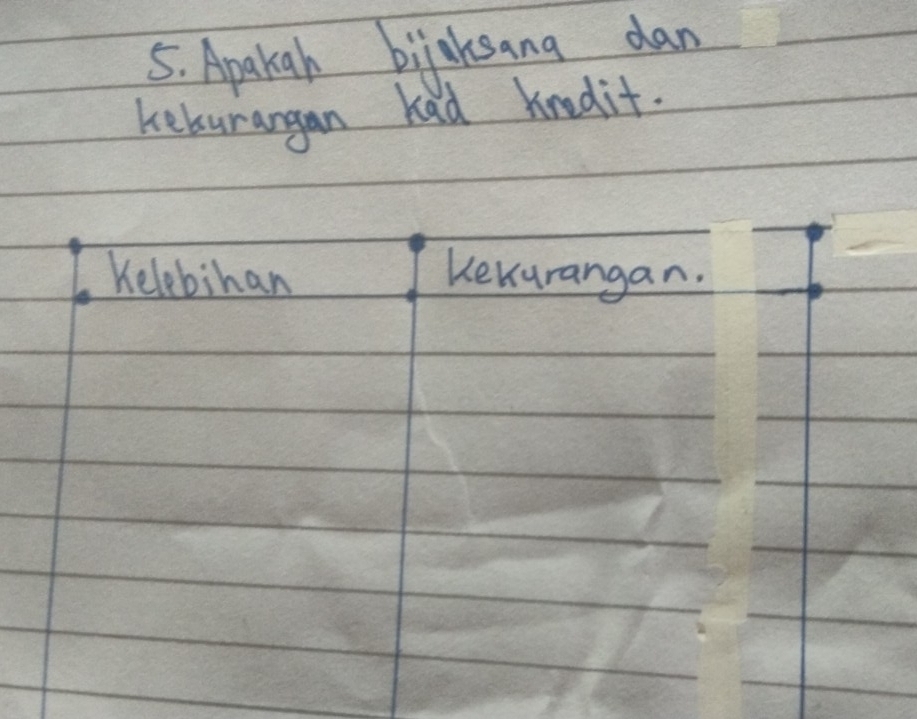 5. Apakah bijaksana dan
kekurangan kad kredit.
Kelebihan
Kekurangan.